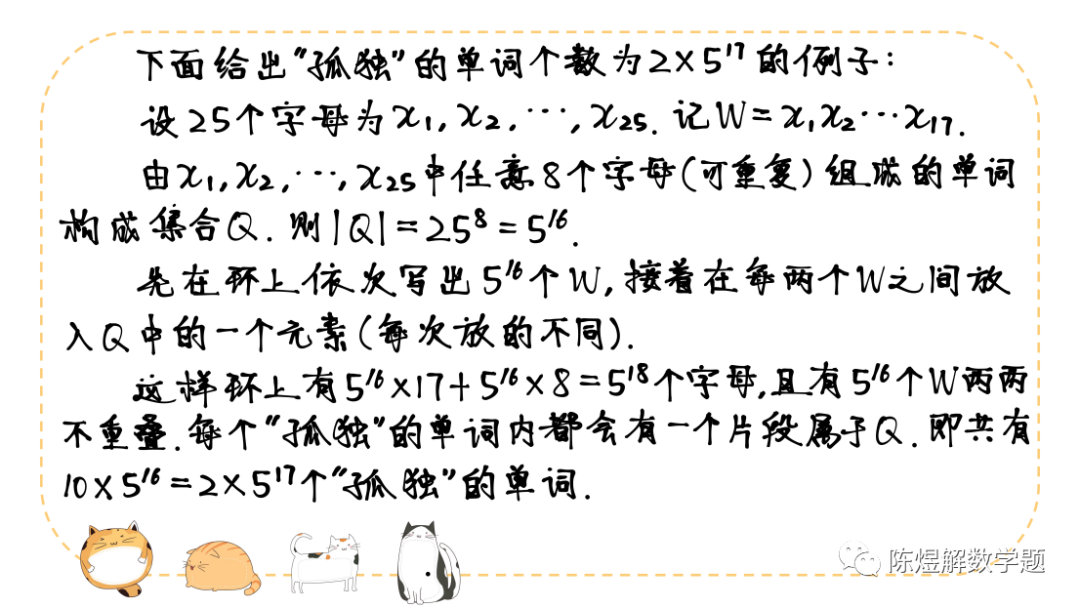 下面给出"孤独"的单词个数为2×5¹⁷的例子:
设25个字母为x₁,x₂,…,x₂₅.记W=x₁x₂…x₁₇.
由x₁,x₂,…,x₂₅中任意8个字母(可重复)组成的单词
构成集合Q.则|Q|=25⁸=5¹⁶.
先在环上依次写出5¹⁶个W,接着在每两个W之间放
入Q中的一个元素(每次放的不同).
这样环上有5¹⁶×17+5¹⁶×8=5¹⁸个字母,且有5¹⁶个W两两
不重叠.每个"孤独"的单词内都会有一个片段属于Q.即共有
10×5¹⁶=2×5¹⁷个"孤独"的单词.
陈煜解数学题